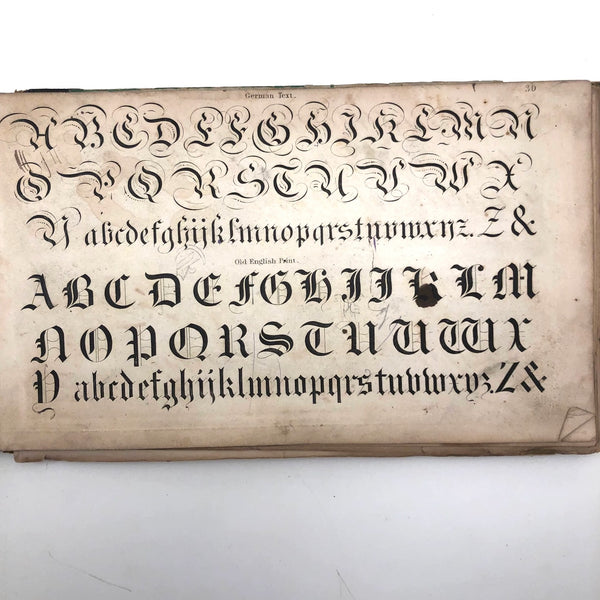 German Text.
30
A B C D E F G H I K L M N
O P Q R S T U V W X
Y abcdefghijklmnopqrstuvwxyz. Z &
Old English Print.
A B C D E F G H I J K L M
N O P Q R S T U V W X
Y abcdefghijklmnopqrstuvwxyz. Z &